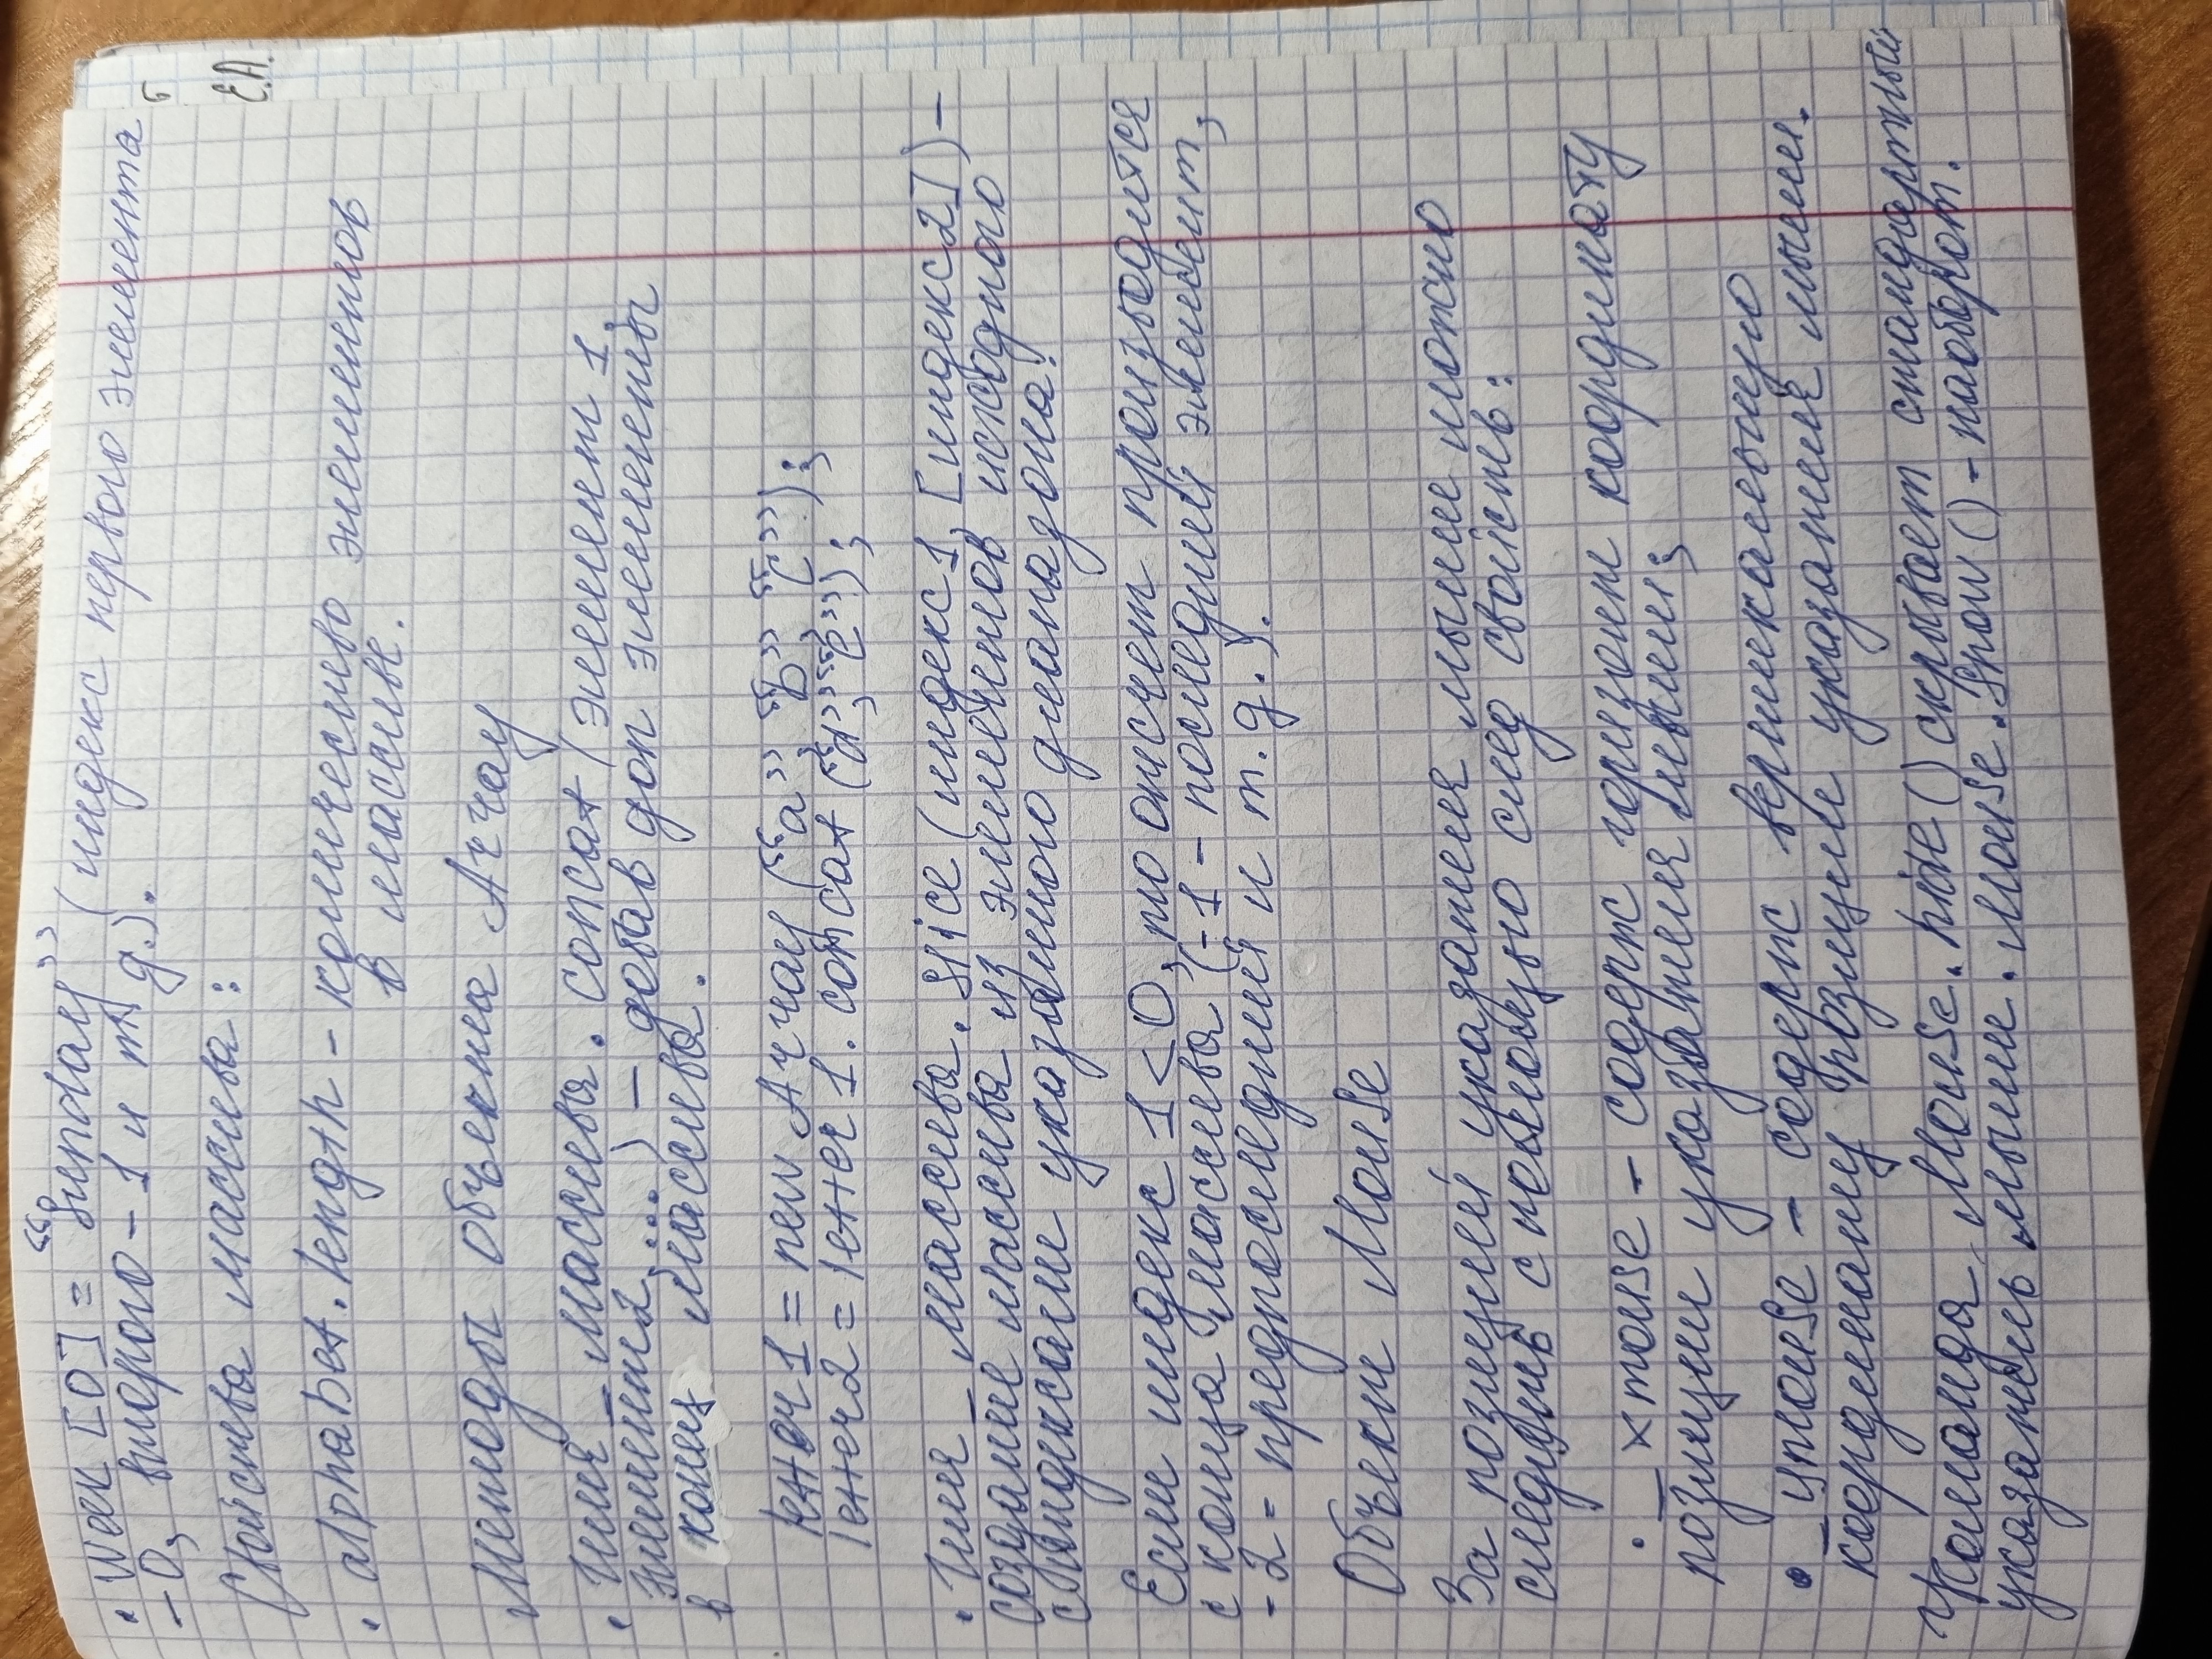 • Week [0] = “Sunday” (индекс первого элемента
– 0, второго – 1 и т. д.).
Свойства массива:
• alphabet.length – количество элементов
в массиве.
Методы объекта Array
• Имя_массива.concat (элемент 1,
элемент2, ...) – добав доп элементы
в конец массива.
letter1 = new Array (“a”, “b”, “c”);
letter2 = letter1.concat (“d”, “e”);
• Имя_массива.slice (индекс1, [индекс2]) –
создание массива из элементов исходного
с индексами указанного диапазона.
Если индекс 1<0, то отсчет производится
с конца массива (-1 – последний элемент,
-2 - предпоследний и т. д.).
Объект Mouse
За позицией указателя мыши можно
следить с помощью след свойств:
• _xmouse – содерж горизонт координату
позиции указателя мыши;
• _ymouse – содерж вертикальную
координату позиции указателя мыши.
Команда Mouse.hide () скрывает стандартный
указатель мыши. Mouse.show () – наоборот.
Е.А.